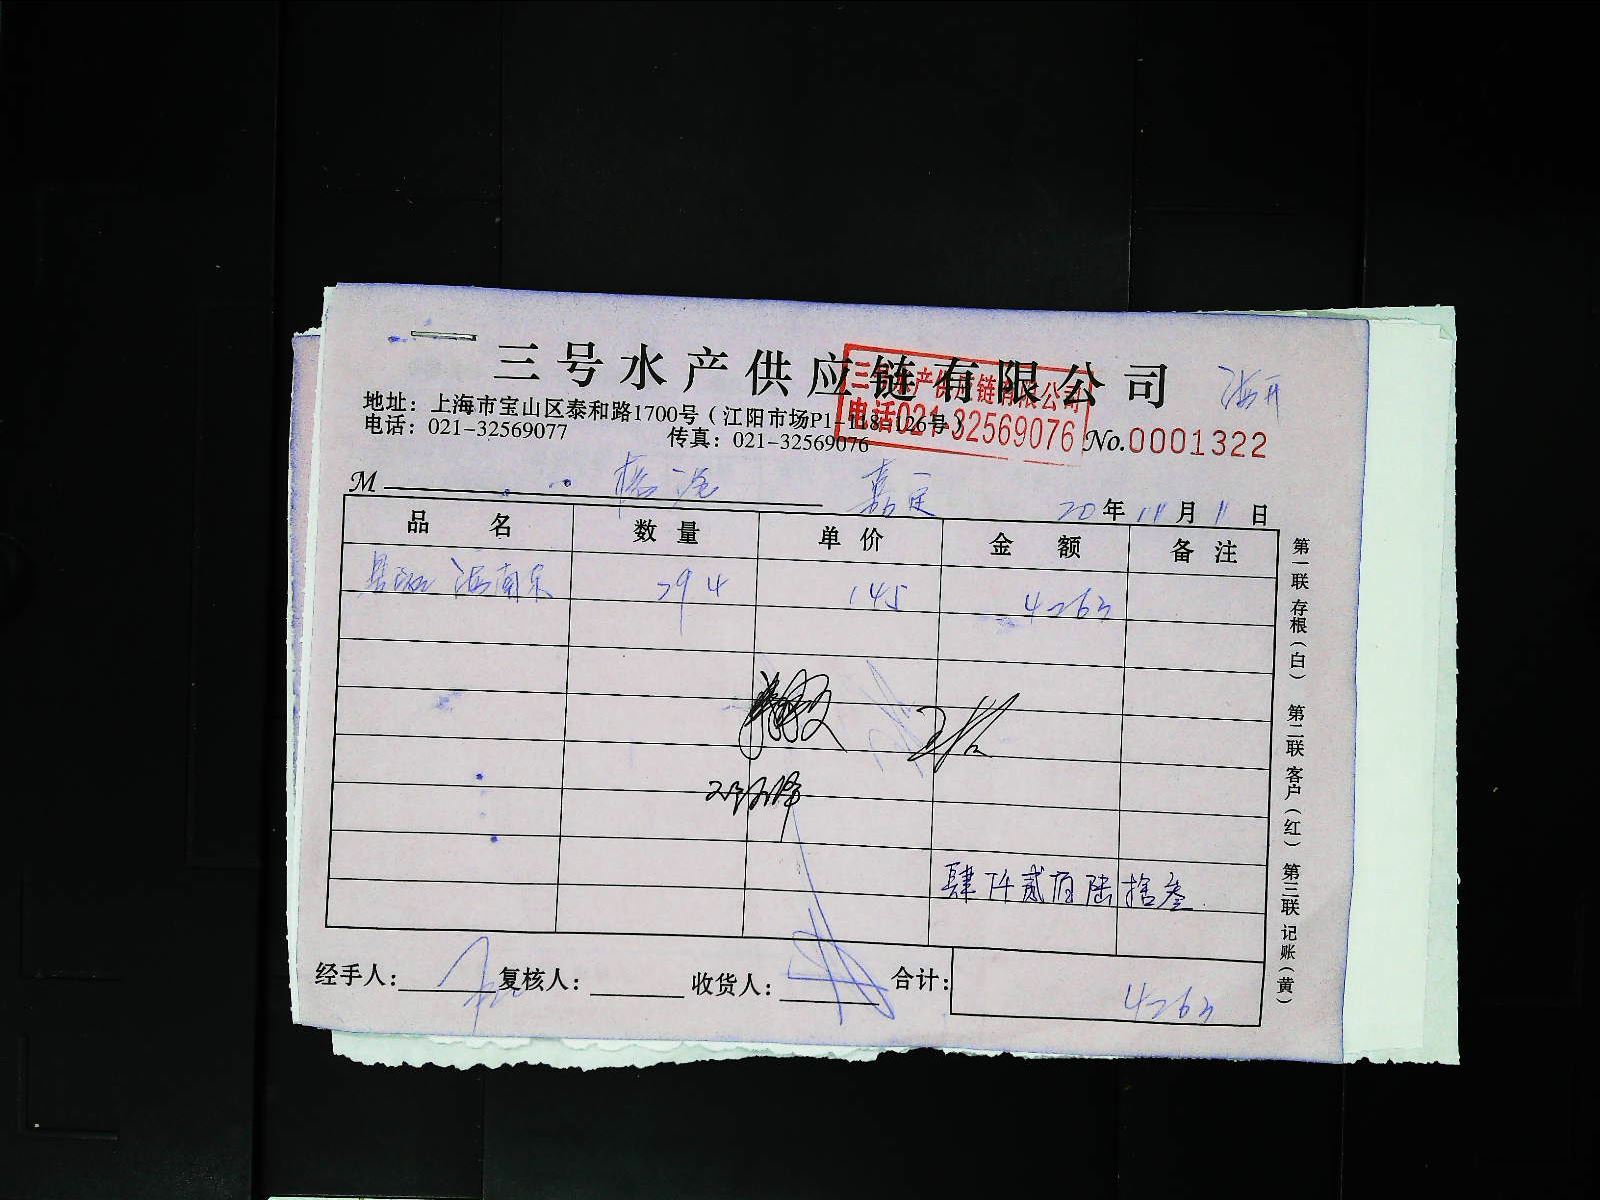 三号水产供应链有限公司
三号水产供应链有限公司
电话021-32569076
地址：上海市宝山区泰和路1700号（江阳市场P1-118-126号）
电话：021-32569077 传真：021-32569076 No.0001322
M 嘉定 20年11月11日
品名 数量 单价 金额 备注
海南东 294 145 4263
肆仟贰佰陆拾叁
经手人： 复核人： 收货人： 合计： 4263
第一联 存根（白） 第二联 客户（红） 第三联 记账（黄）